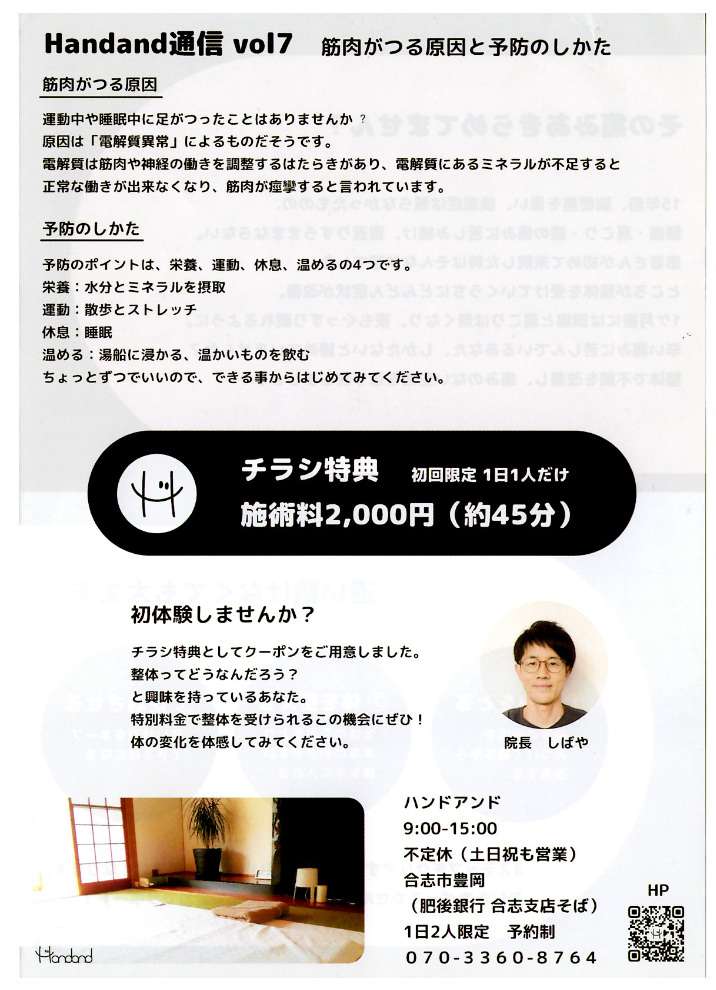 Handand通信 vol7　筋肉がつる原因と予防のしかた
筋肉がつる原因
運動中や睡眠中に足がつったことはありませんか？
原因は「電解質異常」によるものだそうです。
電解質は筋肉や神経の働きを調整するはたらきがあり、電解質にあるミネラルが不足すると
正常な働きが出来なくなり、筋肉が痙攣すると言われています。
予防のしかた
予防のポイントは、栄養、運動、休息、温めるの4つです。
栄養：水分とミネラルを摂取
運動：散歩とストレッチ
休息：睡眠
温める：湯船に浸かる、温かいものを飲む
ちょっとずつでいいので、できる事からはじめてみてください。
チラシ特典　初回限定 1日1人だけ
施術料2,000円（約45分）
初体験しませんか？
チラシ特典としてクーポンをご用意しました。
整体ってどうなんだろう？
と興味を持っているあなた。
特別料金で整体を受けられるこの機会にぜひ！
体の変化を体感してみてください。
院長　しばや
ハンドアンド
9:00-15:00
不定休（土日祝も営業）
合志市豊岡
（肥後銀行 合志支店そば）
1日2人限定　予約制
070-3360-8764
HP
Handand